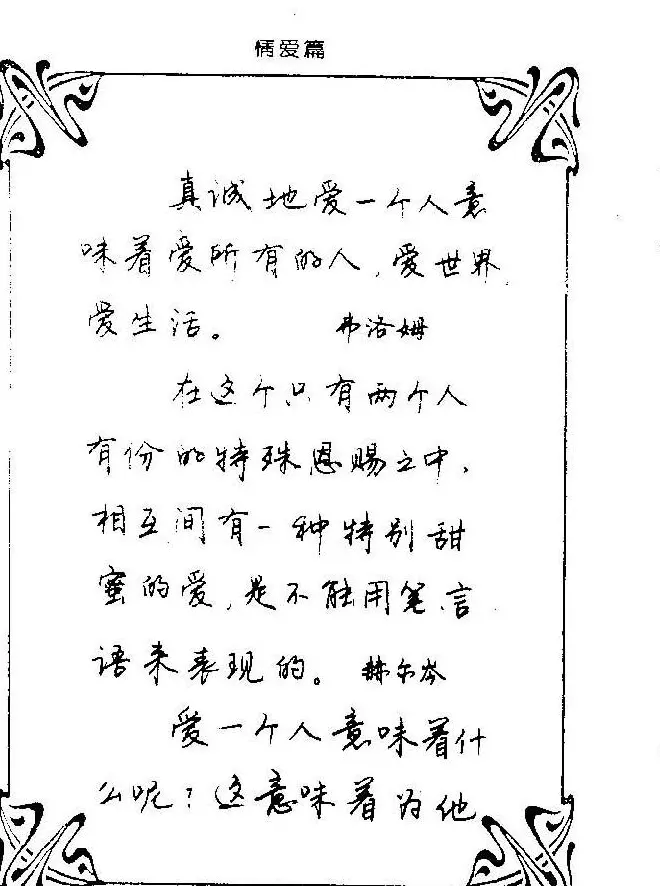 情爱篇
真诚地爱一个人意
味着爱所有的人,爱世界,
爱生活。 弗洛姆
在这个只有两个人
有份的特殊恩赐之中,
相互间有一种特别甜
蜜的爱,是不能用笔、言
语来表现的。 赫尔岑
爱一个人意味着什
么呢?这意味着为他